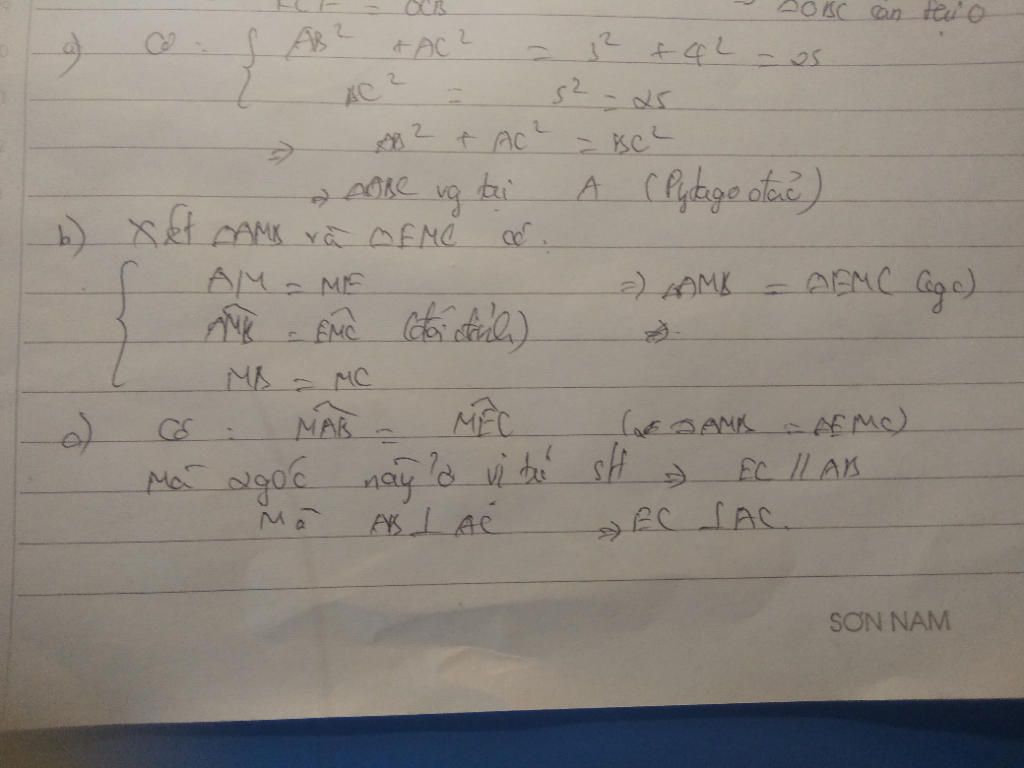 = OCB → ΔOBC cân tại O
a) Có : { AB² + AC² = 3² + 4² = 25
BC² = 5² = 25
⇒ AB² + AC² = BC²
⇒ ΔABC vg tại A (Pytago đảo)
b) Xét ΔAMB và ΔEMC có.
{ AM = ME ⇒ ΔAMB = ΔEMC (cgc)
AMB̂ = EMĈ (đối đỉnh) ⇒
MB = MC
c) Có : MAB̂ = MEĈ (vì ΔAMB = ΔEMC)
Mà 2 góc này ở vị trí slt ⇒ EC // AB
Mà AB ⊥ AC ⇒ EC ⊥ AC.
SƠN NAM